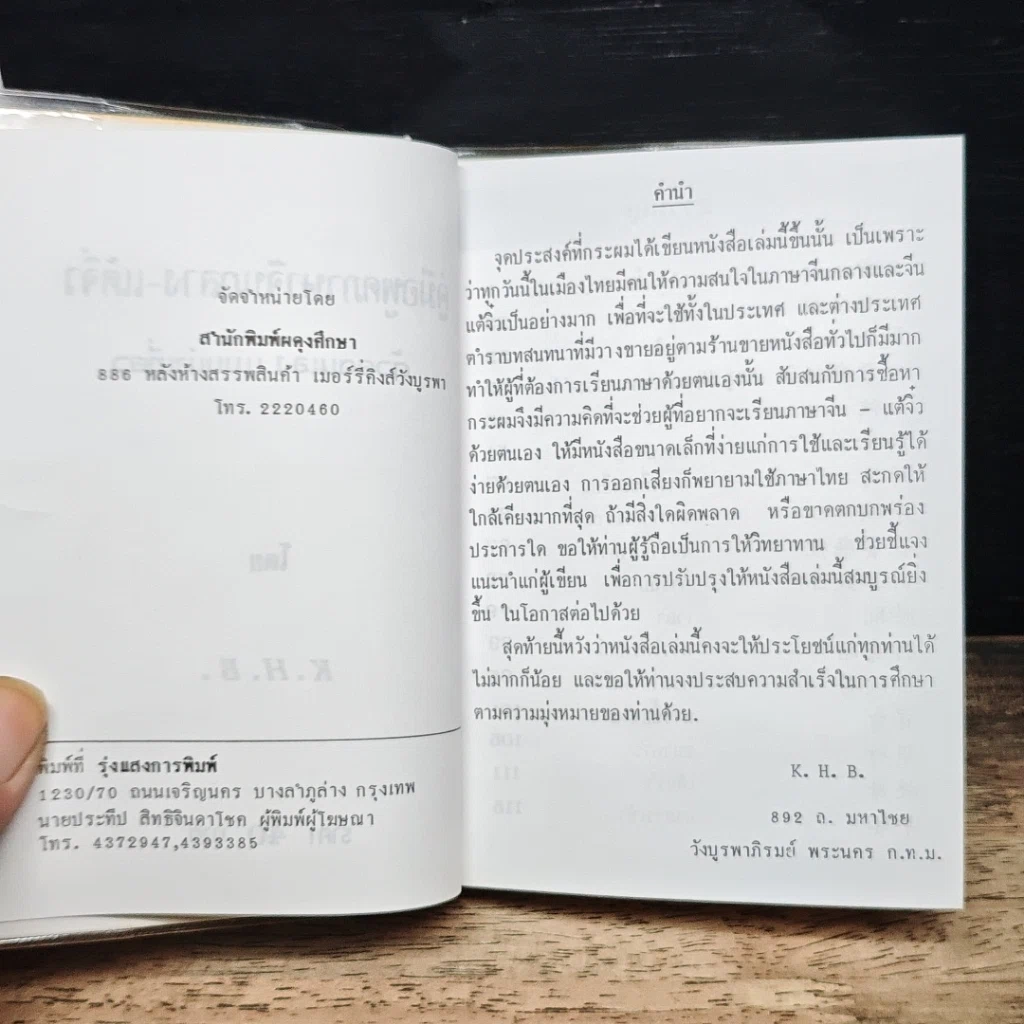 จัดจำหน่ายโดย
สำนักพิมพ์ผดุงศึกษา
886 หลังห้างสรรพสินค้า เมอร์รี่คิงส์วังบูรพา
โทร. 2220460
พิมพ์ที่ รุ่งแสงการพิมพ์
1230/70 ถนนเจริญนคร บางลำภูล่าง กรุงเทพ
นายประทีป สิทธิจินดาโชค ผู้พิมพ์ผู้โฆษณา
โทร. 4372947,4393385
คำนำ
จุดประสงค์ที่กระผมได้เขียนหนังสือเล่มนี้ขึ้นนั้น เป็นเพราะ
ว่าทุกวันนี้ในเมืองไทยมีคนให้ความสนใจในภาษาจีนกลางและจีน
แต้จิ๋วเป็นอย่างมาก เพื่อที่จะใช้ทั้งในประเทศ และต่างประเทศ
ตำราบทสนทนาที่มีวางขายอยู่ตามร้านขายหนังสือทั่วไปก็มีมาก
ทำให้ผู้ที่ต้องการเรียนภาษาด้วยตนเองนั้น สับสนกับการซื้อหา
กระผมจึงมีความคิดที่จะช่วยผู้ที่อยากจะเรียนภาษาจีน – แต้จิ๋ว
ด้วยตนเอง ให้มีหนังสือขนาดเล็กที่ง่ายแก่การใช้และเรียนรู้ได้
ง่ายด้วยตนเอง การออกเสียงก็พยายามใช้ภาษาไทย สะกดให้
ใกล้เคียงมากที่สุด ถ้ามีสิ่งใดผิดพลาด หรือขาดตกบกพร่อง
ประการใด ขอให้ท่านผู้รู้ถือเป็นการให้วิทยาทาน ช่วยชี้แจง
แนะนำแก่ผู้เขียน เพื่อการปรับปรุงให้หนังสือเล่มนี้สมบูรณ์ยิ่ง
ขึ้น ในโอกาสต่อไปด้วย
สุดท้ายนี้หวังว่าหนังสือเล่มนี้คงจะให้ประโยชน์แก่ทุกท่านได้
ไม่มากก็น้อย และขอให้ท่านจงประสบความสำเร็จในการศึกษา
ตามความมุ่งหมายของท่านด้วย.
K. H. B.
892 ถ. มหาไชย
วังบูรพาภิรมย์ พระนคร ก.ท.ม.